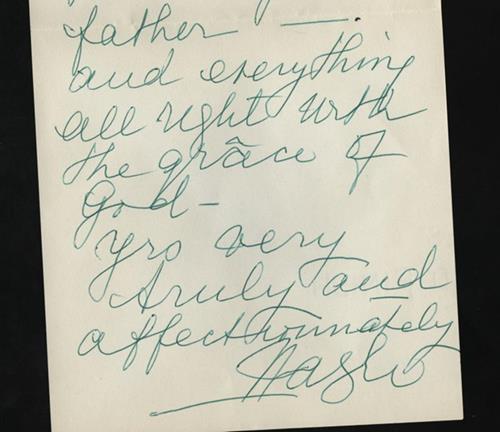 father —
and everything
all right with
the grâce of
God–
Yrs very
truly and
affectionnately